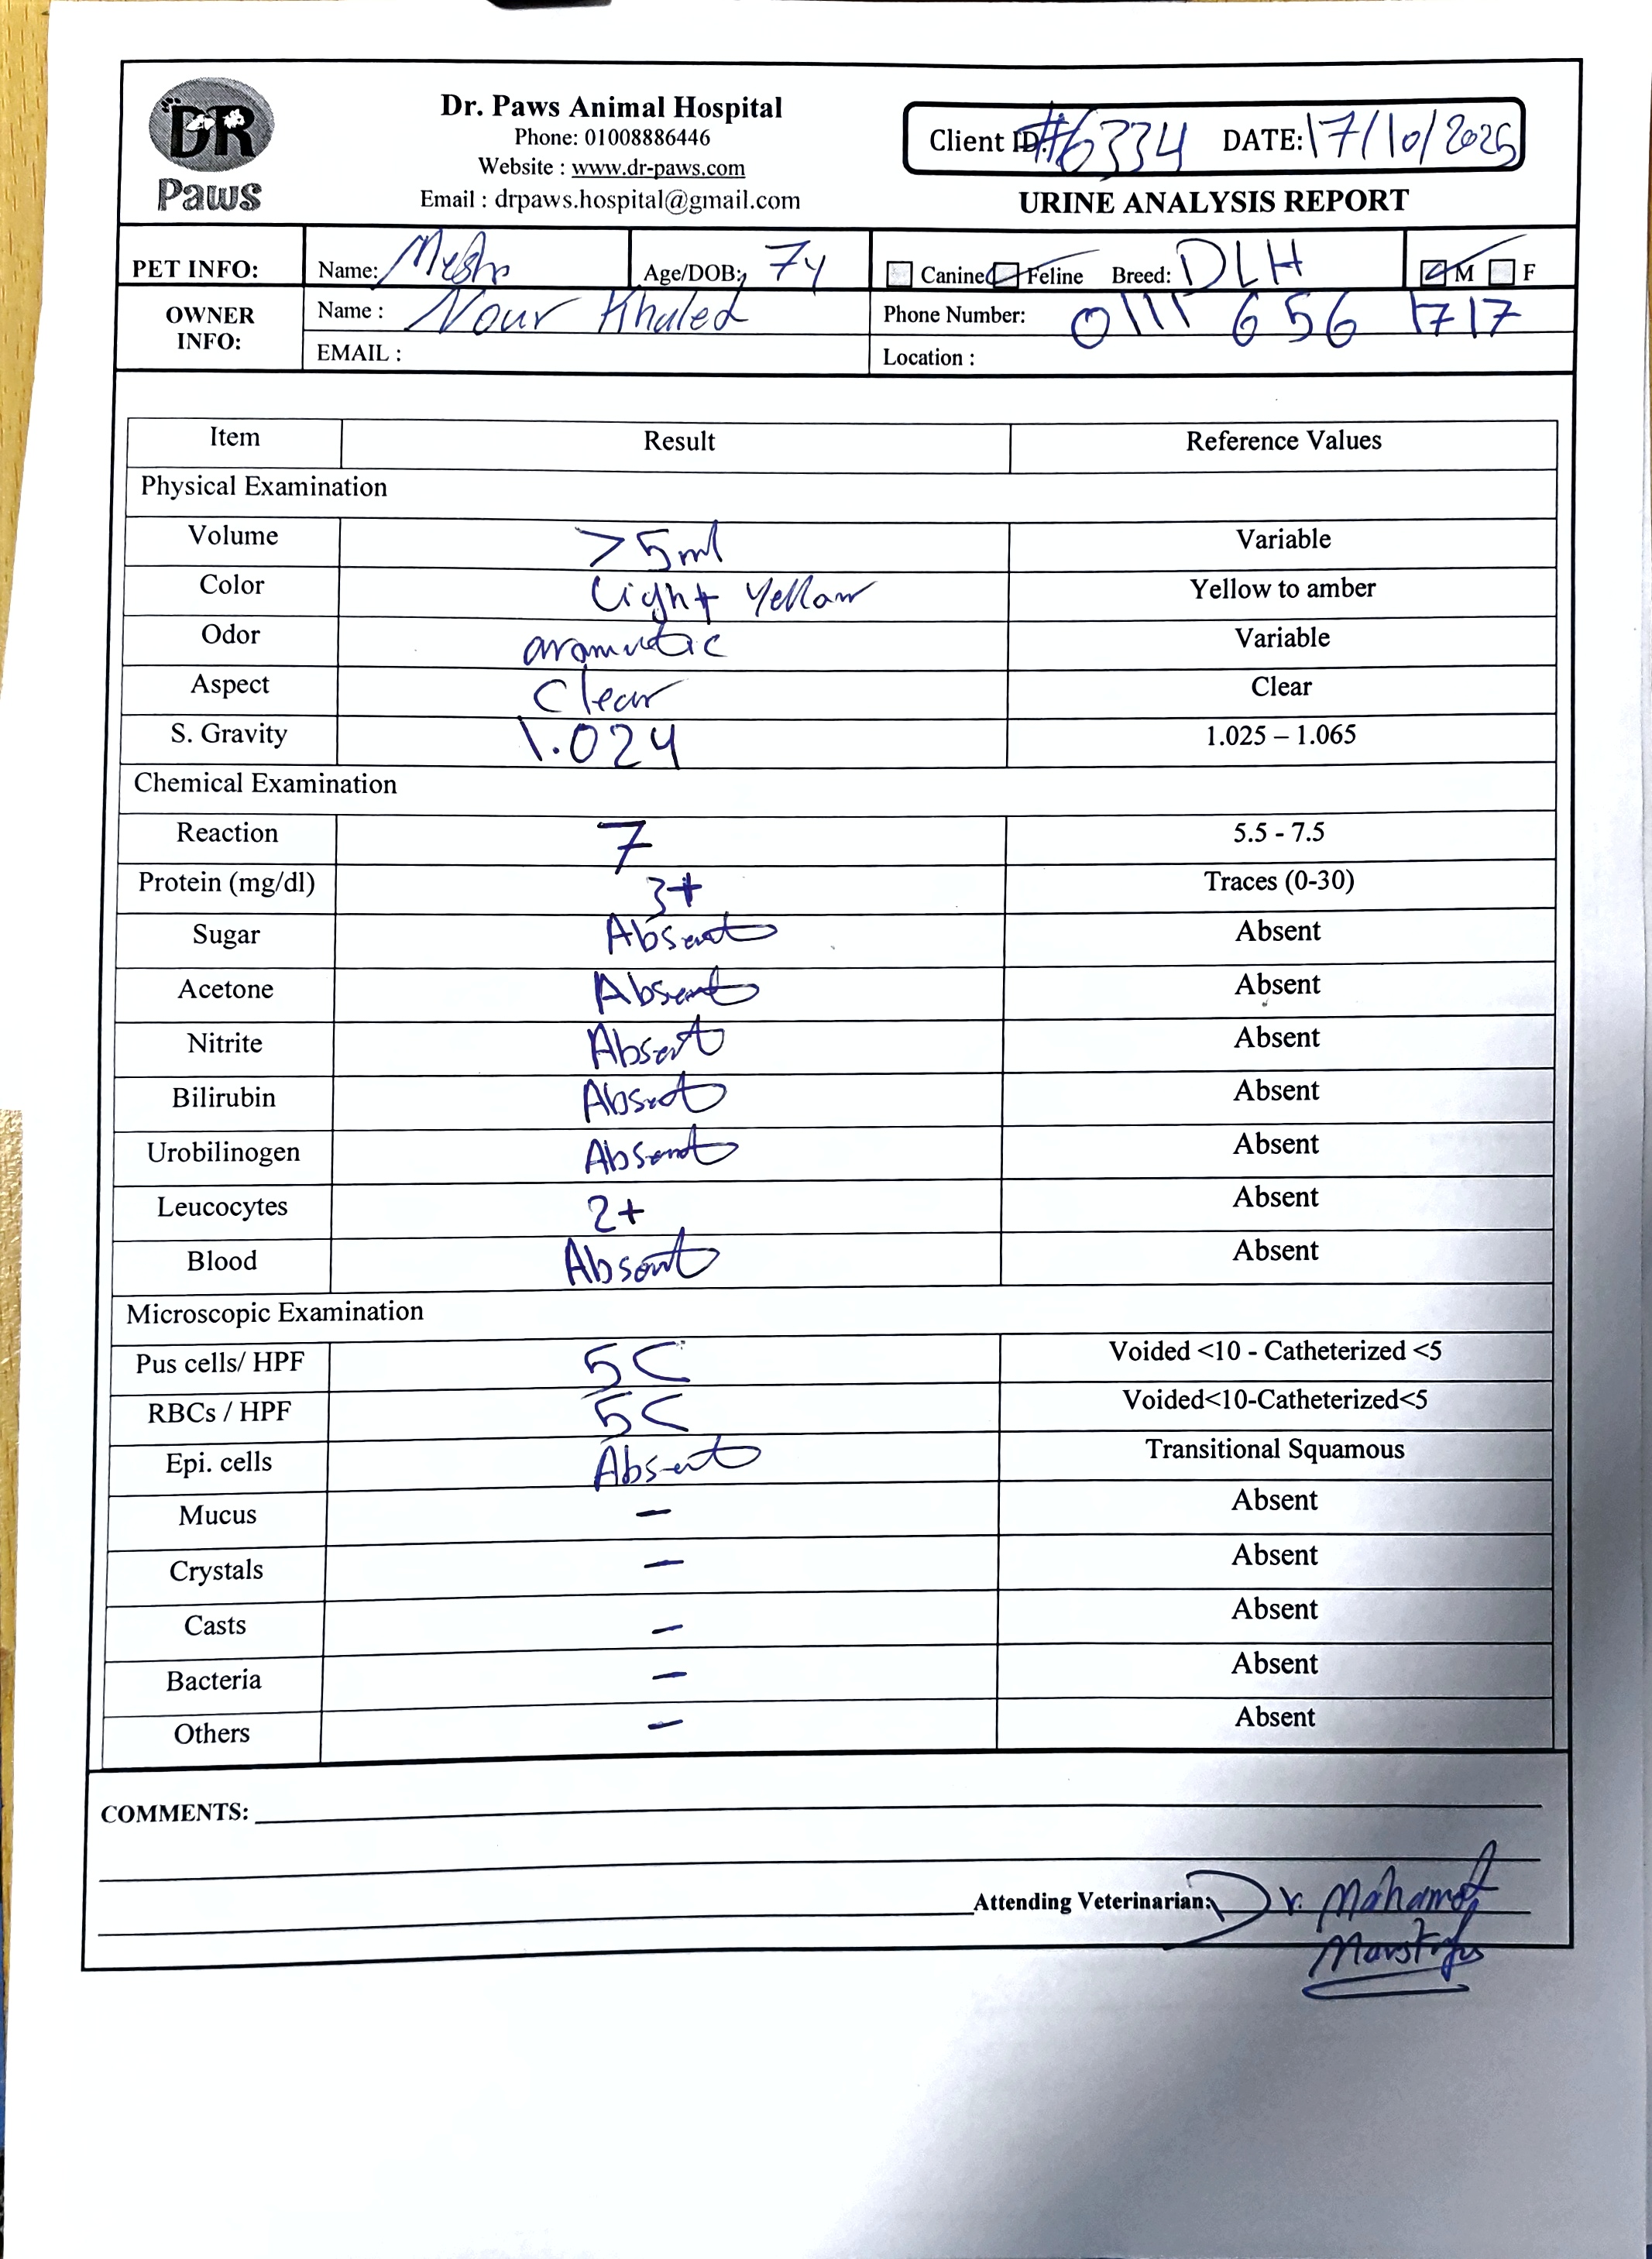 DR
Paws
Dr. Paws Animal Hospital
Phone: 01008886446
Website : www.dr-paws.com
Email : drpaws.hospital@gmail.com
Client ID: #6334 DATE: 17/10/2025
URINE ANALYSIS REPORT
PET INFO: Name: Age/DOB: 7y Canine Feline Breed: DLH M F
OWNER INFO: Name : Nour Khaled Phone Number: 0111 656 1717
EMAIL : Location :
Item Result Reference Values
Physical Examination
Volume >5ml Variable
Color Light Yellow Yellow to amber
Odor aromatic Variable
Aspect Clear Clear
S. Gravity 1.024 1.025 – 1.065
Chemical Examination
Reaction 7 5.5 - 7.5
Protein (mg/dl) 3+ Traces (0-30)
Sugar Absent Absent
Acetone Absent Absent
Nitrite Absent Absent
Bilirubin Absent Absent
Urobilinogen Absent Absent
Leucocytes 2+ Absent
Blood Absent Absent
Microscopic Examination
Pus cells/ HPF 5< Voided <10 - Catheterized <5
RBCs / HPF 5< Voided<10-Catheterized<5
Epi. cells Absent Transitional Squamous
Mucus – Absent
Crystals – Absent
Casts – Absent
Bacteria – Absent
Others – Absent
COMMENTS:
Attending Veterinarian: Dr. Mohamed